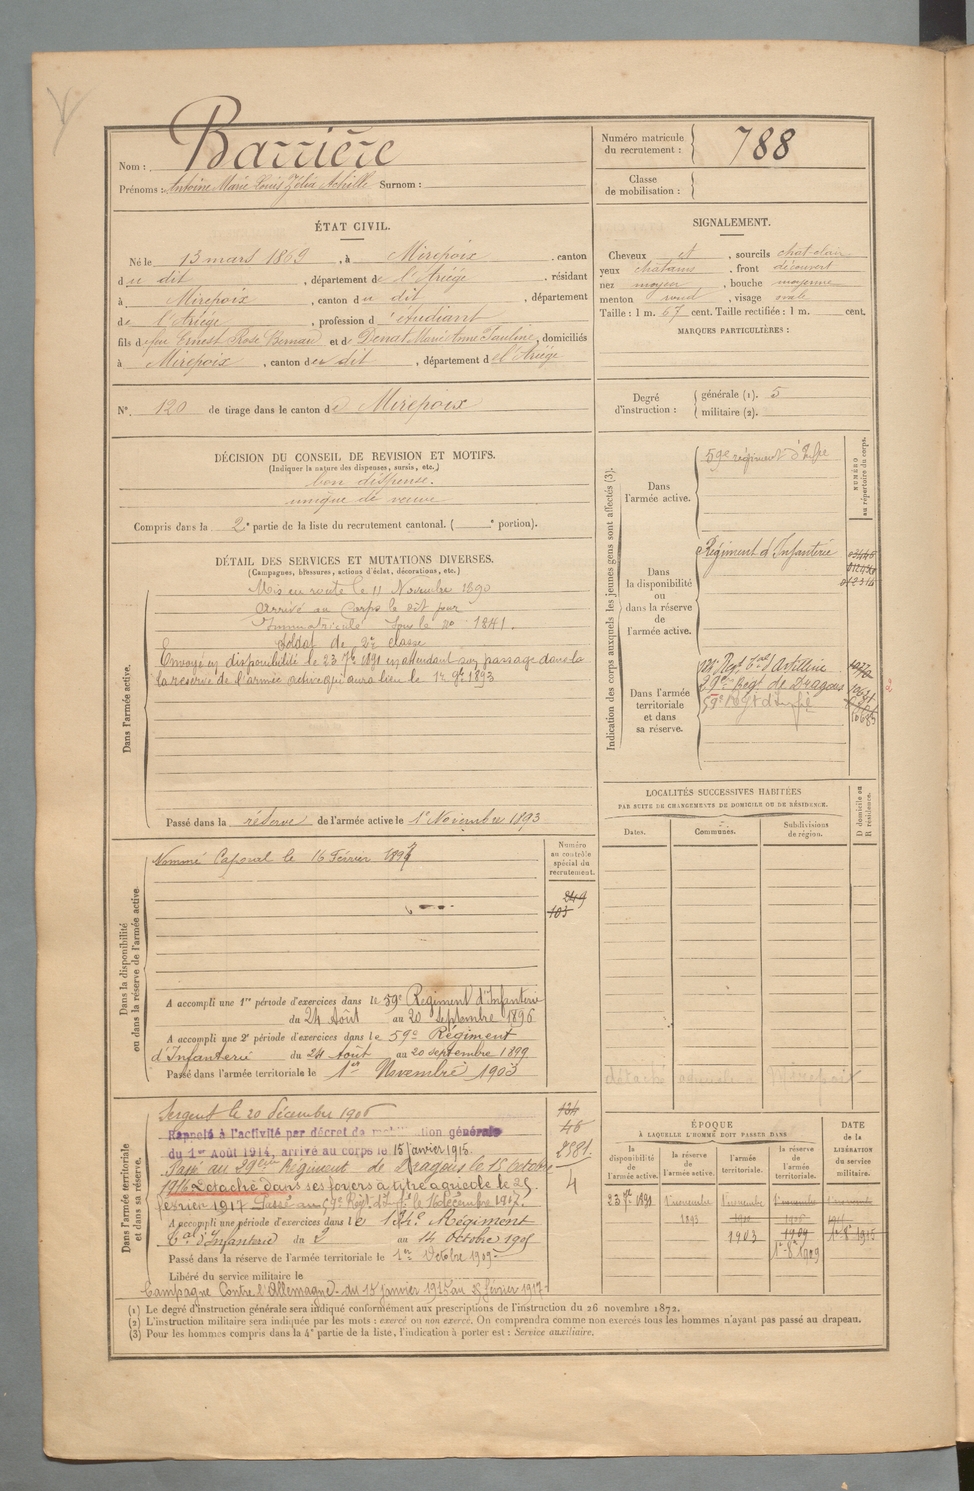 Barrière
Nom :
Prénoms : Antoine Marie Louis Félix Achille Surnom :
Numéro matricule du recrutement : 788
Classe de mobilisation :
ÉTAT CIVIL.
Né le 13 mars 1869, à Mirepoix, canton
du dit, département de l'Ariège, résidant
à Mirepoix, canton du dit, département
de l'Ariège, profession d'étudiant
fils de feu Ernest Rose Bernard et de Denat Marie Anne Pauline, domiciliés
à Mirepoix, canton du dit, département de l'Ariège
N° 120 de tirage dans le canton de Mirepoix
SIGNALEMENT.
Cheveux et, sourcils chat clair
yeux chatains, front découvert
nez moyen, bouche moyenne
menton rond, visage ovale
Taille : 1 m. 67 cent. Taille rectifiée : 1 m. cent.
MARQUES PARTICULIÈRES :
Degré d'instruction : générale (1). 5
militaire (2).
DÉCISION DU CONSEIL DE REVISION ET MOTIFS.
(Indiquer la nature des dispenses, sursis, etc.)
bon dispensé.
unique de veuve
Compris dans la 2e partie de la liste du recrutement cantonal. ( e portion).
DÉTAIL DES SERVICES ET MUTATIONS DIVERSES.
(Campagnes, blessures, actions d'éclat, décorations, etc.)
Dans l'armée active.
Mis en route le 11 Novembre 1890
Arrivé au Corps le dit jour
Immatriculé sous le no 1841.
Soldat de 2e classe
Envoyé en disponibilité le 23 7bre 1891 en attendant son passage dans la
la réserve de l'armée active qui aura lieu le 1er 9bre 1893
Passé dans la réserve de l'armée active le 1er Novembre 1893
Indication des corps auxquels les jeunes gens sont affectés (3).
NUMÉRO au répertoire du corps.
Dans l'armée active.
59e régiment d'Infie
Dans la disponibilité ou dans la réserve de l'armée active.
Régiment d'Infanterie
012310
Dans l'armée territoriale et dans sa réserve.
29e Regt de Dragons
59e Régt d'Infie
LOCALITÉS SUCCESSIVES HABITÉES
PAR SUITE DE CHANGEMENTS DE DOMICILE OU DE RÉSIDENCE.
Dates.
Communes.
Subdivisions de région.
D domicile ou R résidence.
Dans la disponibilité ou dans la réserve de l'armée active.
Numéro au contrôle spécial du recrutement.
Nommé Caporal le 16 Février 1894
249
103
A accompli une 1re période d'exercices dans le 59e Régiment d'Infanterie
du 24 Août au 20 septembre 1896
A accompli une 2e période d'exercices dans le 59e Régiment
d'Infanterie du 24 Août au 20 septembre 1899
Passé dans l'armée territoriale le 1er Novembre 1903
Dans l'armée territoriale et dans sa réserve.
Sergent le 20 décembre 1906
Rappelé à l'activité par décret de mobilisation générale
du 1er Août 1914, arrivé au corps le 15 janvier 1915.
Passé au 29eme Régiment de Dragons le 15 octobre
1916 Détaché dans ses foyers à titre agricole le 25
février 1917 Passé au 59e Régt d'Infie le 16 décembre 1917.
A accompli une période d'exercices dans le 134e Régiment
Tal d'Infanterie du 2 au 14 octobre 1905
Passé dans la réserve de l'armée territoriale le 1er Octobre 1909
Libéré du service militaire le
Campagne Contre l'Allemagne du 15 janvier 1915 au 25 février 1917
134
45
2581
4
ÉPOQUE
À LAQUELLE L'HOMME DOIT PASSER DANS
la disponibilité de l'armée active.
la réserve de l'armée active.
l'armée territoriale.
la réserve de l'armée territoriale.
DATE de la LIBÉRATION du service militaire.
23 7bre 1891
1er novembre 1893
1er novembre
1903
1909
1er 8bre 1909
1er 8bre 1915
(1) Le degré d'instruction générale sera indiqué conformément aux prescriptions de l'instruction du 26 novembre 1872.
(2) L'instruction militaire sera indiquée par les mots : exercé ou non exercé. On comprendra comme non exercés tous les hommes n'ayant pas passé au drapeau.
(3) Pour les hommes compris dans la 4e partie de la liste, l'indication à porter est : Service auxiliaire.